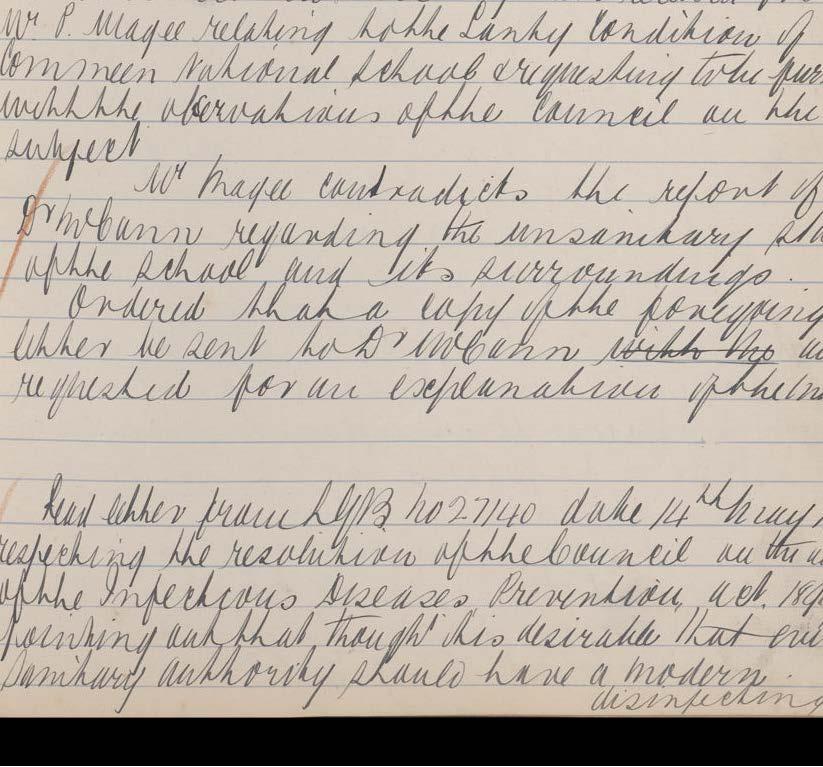 Mr P. Magee relating to the Sanity Condition of
Commeen National School & requesting to be fur
with the observations of the Council on the
subject
Mr Magee contradicts the report of
Dr McCann regarding the unsanitary sta
of the school and its surroundings.
Ordered that a copy of the foregoing
letter be sent to Dr McCann with the an
requested for an explanation of the
Read letter from LGB No 27140 date 14th May
respecting the resolution of the Council on the a
of the Infectious Diseases Prevention act. 189
pointing out that though it is desirable that eve
Sanitary authority should have a modern
disinfecting